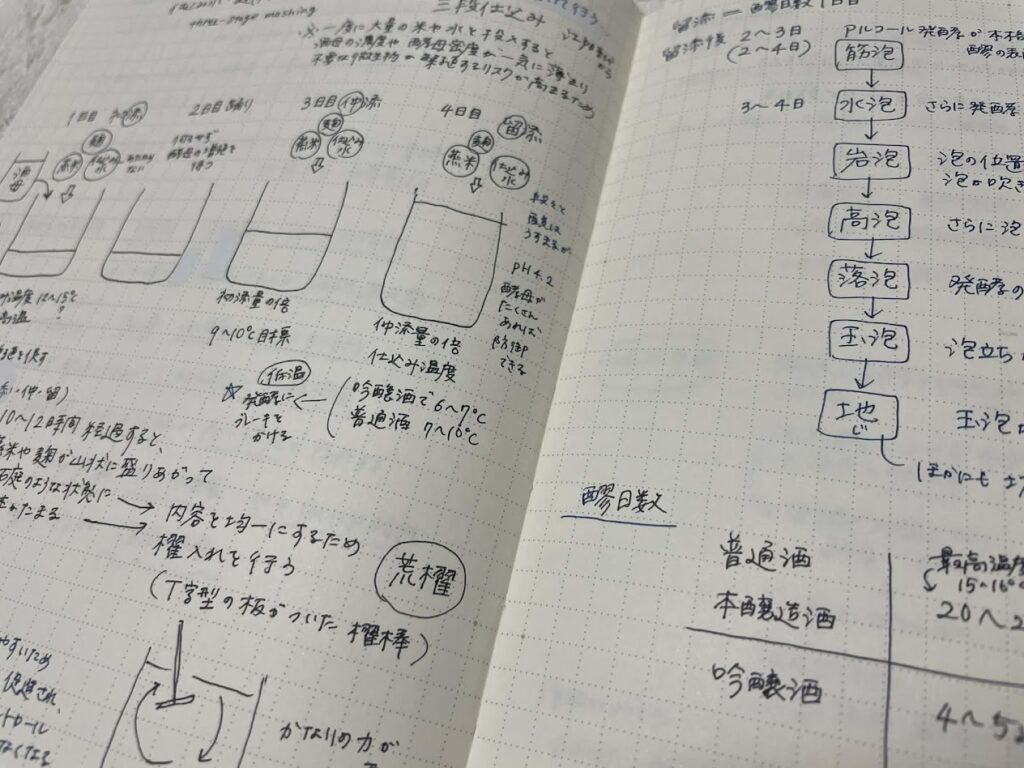 three-stage mashing
三段仕込み
※一度に大量の米や水を投入すると
酒母の濃度や酵母密度が一気に薄まり
不要な微生物が繁殖するリスクが高まるため
1日目 初添
2日目 踊り
3日目 仲添
4日目 留添
酒母
麹
蒸米
仕込み水
何もせず
酵母の増殖を
待つ
麹
蒸米
仕込み水
麹
蒸米
仕込み水
酸度は
うすまるが
pH4.2
酵母が
たくさん
あれば
防御
できる
温度12〜15℃
初添量の倍
9〜10℃目標
仲添量の倍
仕込み温度
吟醸酒で6〜7℃
普通酒 7〜10℃
低温
☆発酵に
ブレーキを
かける
添・仲・留)
10〜12時間経過すると、
蒸米や麹が山状に盛りあがって
のような状態に
たまる
内容を均一にするため
櫂入れを行う
荒櫂
(T字型の板がついた櫂棒)
やすいため
促進され、
トロール
なくなる
かなりの力が
留添=醪日数1日目
留添後 2〜3日
(2〜4日)
アルコール発酵が本格
醪の表
筋泡
3〜4日
水泡
さらに発酵
岩泡
泡の位置
泡が吹き
高泡
さらに泡
落泡
発酵の
玉泡
泡立ち
地
玉泡
ほかにも
醪日数
最高温度
15〜16℃
普通酒
本醸造酒
20〜2
吟醸酒
4〜5